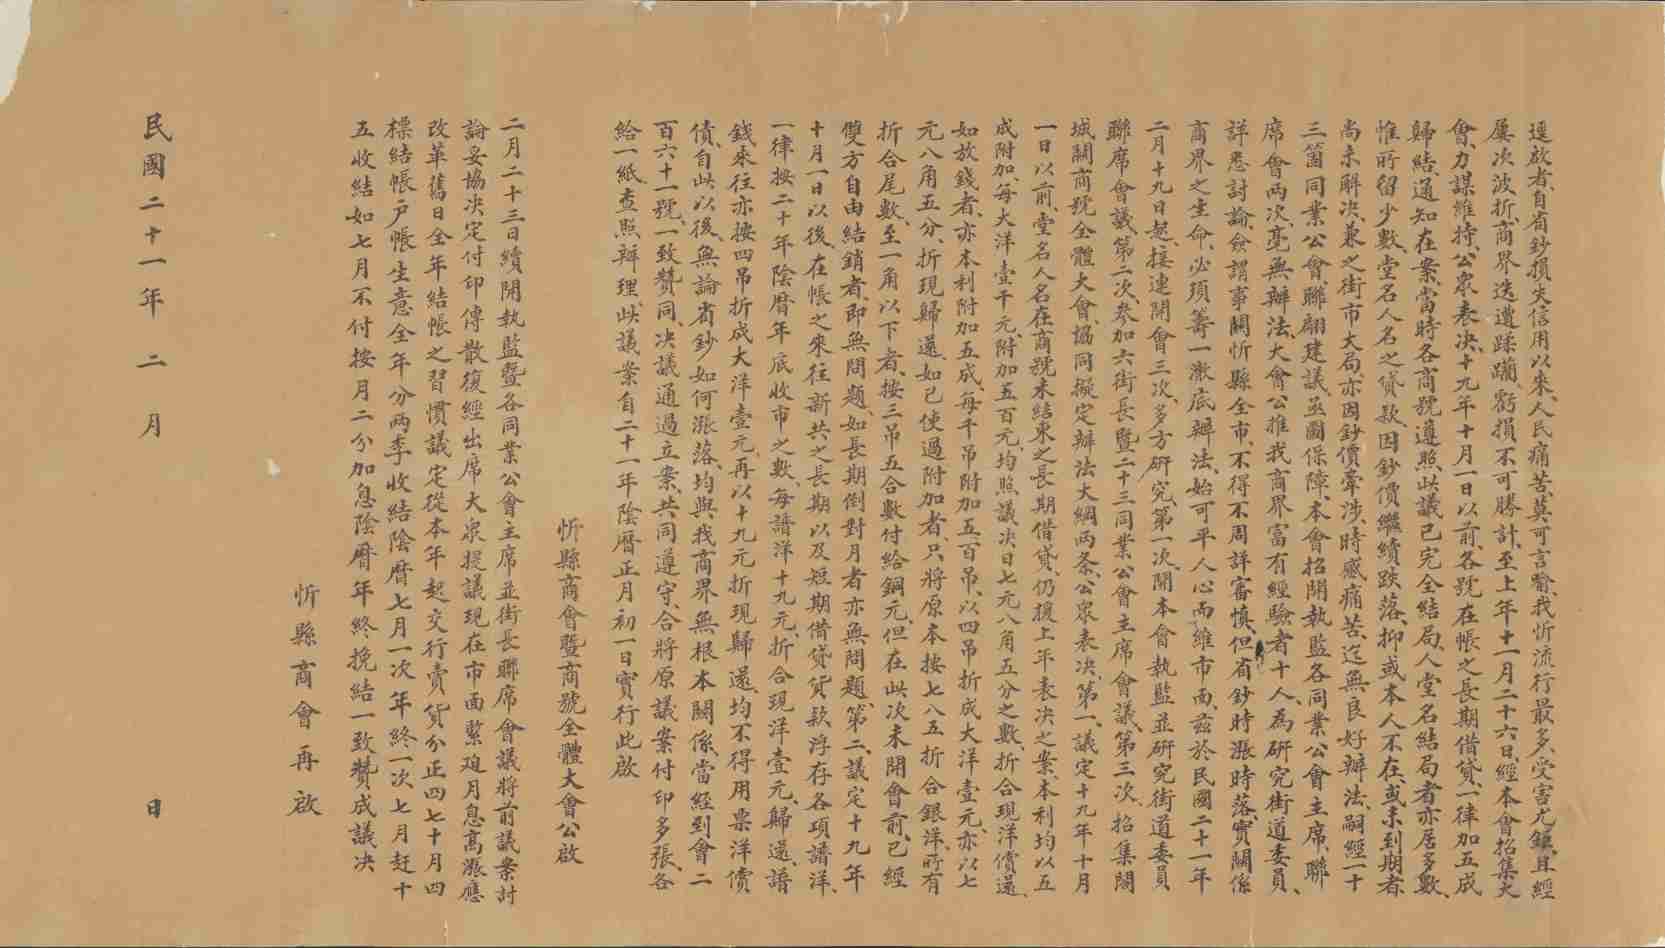 逕啟者、自省鈔損失信用以來、人民痛苦、莫可言喻、我忻流行最多、受害尤鉅、且經
屢次波折、商界迭遭蹂躪、虧損不可勝計、至上年十一月二十六日、經本會招集大
會、力謀維持、公衆表决、十九年十月一日以前、各號在帳之長期借貸、一律加五成
歸結、通知在案、當時各商號遵照此議已完全結局、人堂名結局者亦居多數、
惟所留少數、堂名人名之貸款、因鈔價繼續跌落、抑或本人不在、或未到期者
尚未解决、兼之街市大局、亦因鈔價牽涉、時感痛苦、迄無良好辦法、嗣經二十
三箇同業公會、聯翩建議、亟圖保障、本會招開執監各同業公會主席、聯
席會兩次、毫無辦法、大會公推我商界富有經驗者十人、為研究街道委員、
詳悉討論、僉謂事關忻縣全市、不得不周詳審慎、但省鈔時漲時落、實關係
商界之生命、必須籌一澈底辦法、始可平人心而維市面、茲於民國二十一年
二月十九日起、接連開會三次、多方研究、第一次、開本會執監並研究街道委員
聯席會議、第二次、參加六街長暨二十三同業公會主席會議、第三次、招集關
城關商號全體大會、協同擬定辦法大綱兩条、公衆表决、第一、議定十九年十月
一日以前、堂名人名在商號未結束之長期借貸、仍援上年表决之案、本利均以五
成附加、每大洋壹千元、附加五百元、均照議决日七元八角五分之數、折合現洋償還、
如放錢者、亦本利附加五成、每千吊附加五百吊、以四吊折成大洋壹元、亦以七
元八角五分、折現歸還、如已使過附加者、只將原本按七八五折合銀洋、所有
折合尾數、至一角以下者、按三吊五合數付給銅元、但在此次未開會前、已經
雙方自由結銷者、即無問題、如長期倒對月者亦無問題、第二、議定十九年
十月一日以後、在帳之來往新共之長期以及短期借貸貨款浮存各項譜洋、
一律按二十年陰曆年底收市之數、每譜洋十九元、折合現洋壹元、歸還、譜
錢來往亦按四吊折成大洋壹元、再以十九元折現歸還、均不得用票洋償
債、自此以後、無論省鈔如何漲落、均與我商界無根本關係、當經到會二
百六十一號、一致贊同、决議通過立案、共同遵守、合將原議案付印多張、各
給一紙、查照辦理、此議案自二十一年陰曆正月初一日實行此啟
忻縣商會暨商號全體大會公啟
二月二十三日續開執監暨各同業公會主席並街長聯席會議將前議案討
論妥協决定付印傳散復經出席大衆提議現在市面緊廹月息高漲應
改革舊日全年結帳之習慣議定從本年起交行賣貨分正四七十月四
標結帳戶帳生意全年分兩季收結陰曆七月一次年終一次七月赶十
五收結如七月不付按月二分加息陰曆年終挽結一致贊成議决
忻縣商會再啟
民國二十一年 二 月 日